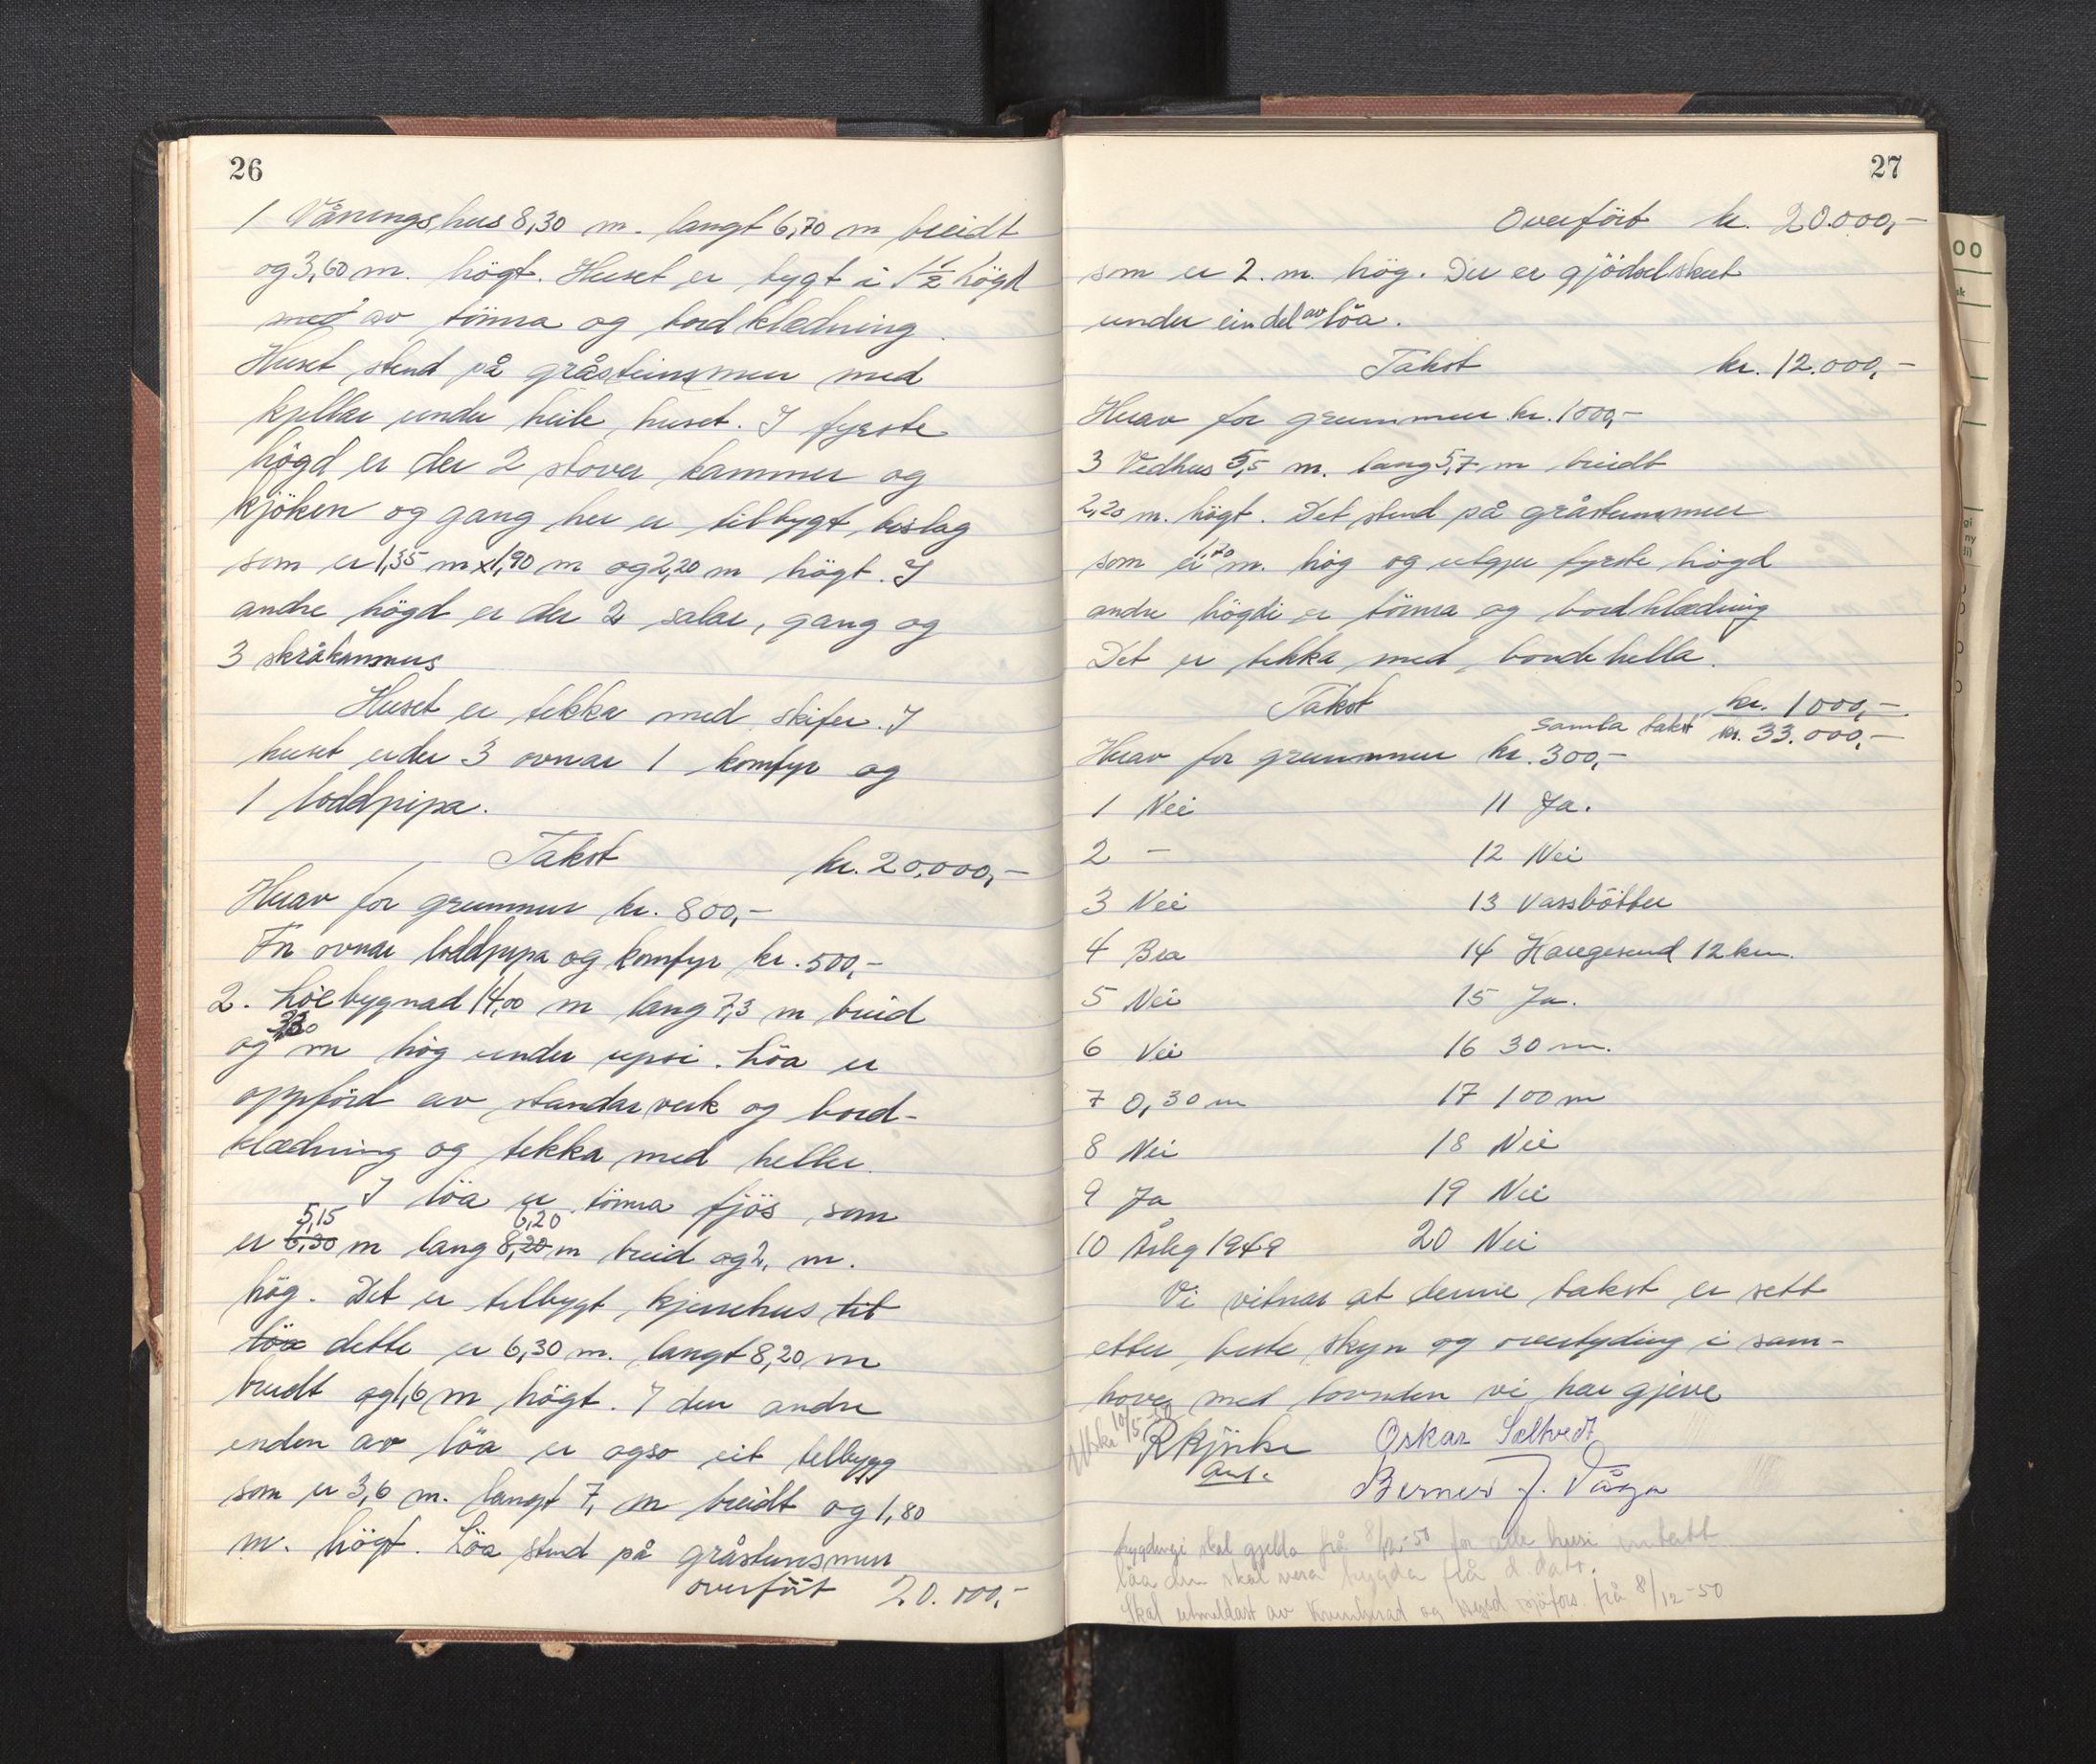 26
1 Våningshus 8,30 m. langt 6,70 m breidt
og 3,60 m. högt. Huset er bygt i 1 1/2 högd
med av tömra og bordklædning.
Huset stend på gråsteinsmur med
kjellar under heile huset. I fyrste
högd er der 2 stover kammer og
kjöken og gang her er tilbygt bislag
som er 1,35 m x 1,90 m og 2,20 m högt. I
andre högd er der 2 salar, gang og
3 skråkammers
Huset er tekka med skifer. I
huset er der 3 ovnar 1 komfyr og
1 loddpipa.
Takst kr. 20.000,-
Herav for grunnmur kr. 800,-
Fn ovnar loddpipa og komfyr kr. 500,-
2. Löebygnad 14,00 m lang 7,3 m breid
og 3,30 m hög under upsi. Löa er
oppförd av standarverk og bord-
klædning og tekka med heller.
I löa er tömra fjös som
5,15 6,20
er 6,30 m lang 8,20 m breid og 2, m.
hög. Det er tilbygt kjerrehus til
löa dette er 6,30 m. langt 8,20 m
breidt og 1,6 m högt. I den andre
enden av löa er ogso eit tilbygg
som er 3,6 m. langt 7, m breidt og 1,80
m. högt. Löa stend på gråsteinsmur
overfört 20.000,-
27
Overfört kr. 20.000,-
som er 2. m. hög. Der er gjödselskut
under ein del av löa.
Takst kr. 12.000,-
Herav for grunnmur kr. 1000,-
3 Vedhus 5,5 m. lang 5,7 m breidt
2,20 m. högt. Det stend på gråsteinsmur
som er 1,70 m. hög og utgjer fyrste högd
andre högdi er tömra og bordklædning
Det er tekka med bondehella.
Takst kr. 1000,-
Samla takst kr. 33.000,-
Herav for grunnmur kr. 300,-
1 Nei 11 Ja.
2 - 12 Nei
3 Nei 13 Vassbötter
4 Bra 14 Haugesund 12 km.
5 Nei 15 Ja.
6 Nei 16 30 m.
7 0,30 m 17 100 m
8 Nei 18 Nei
9 Ja 19 Nei
10 Årleg 1949 20 Nei
Vi vitnar at denne takst er sett
etter beste skyn og overtyding i sam-
hove med lovnden vi har gjeve
Utska 10/5-50
Oskar Saltvedt
Berner J. Våga
trygdingi skal gjelda frå 8/12-50 for alle husi untatt
löa den skal vera trygda frå d. dato.
Skal utmeldast av og frå 8/12-50